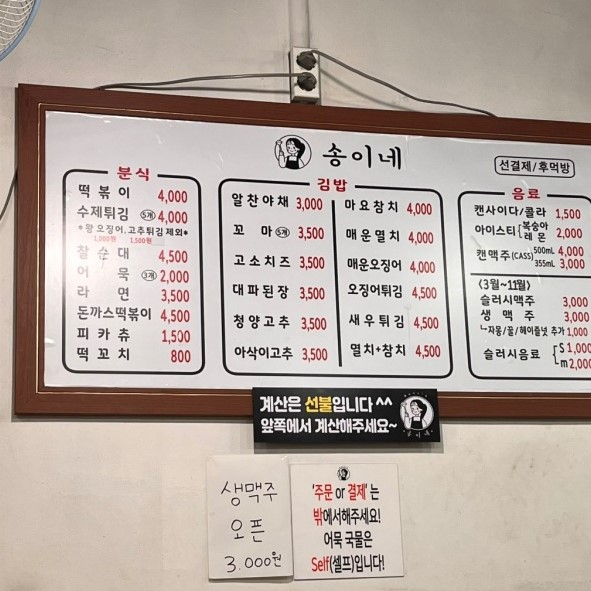 송이네
선결제/후먹방
분식
떡볶이 4,000
수제튀김 5개 4,000
*왕오징어, 고추튀김 제외*
1,300원 1,500원
찰순대 4,500
어묵 3개 2,000
라면 3,500
돈까스떡볶이 4,500
피카츄 1,500
떡꼬치 800
김밥
알찬야채 3,000
꼬마 5개 3,500
고소치즈 3,500
대파된장 3,500
청양고추 3,500
아삭이고추 3,500
마요참치 4,000
매운멸치 4,000
매운오징어 4,000
오징어튀김 4,500
새우튀김 4,500
멸치+참치 4,500
음료
캔사이다/콜라 1,500
아이스티 복숭아 레몬 2,000
캔맥주(CASS) 500mL 4,000
355mL 3,000
<3월~11월>
슬러시맥주 3,000
생맥주 3,000
ㄴ자몽/꿀/헤이즐넛 추가 1,000
슬러시음료 S 1,000
m 2,000
계산은 선불입니다^^
앞쪽에서 계산해주세요~
송이네
생맥주
오픈
3.000원
'주문 or 결제' 는
밖에서해주세요!
어묵 국물은
Self(셀프)입니다!